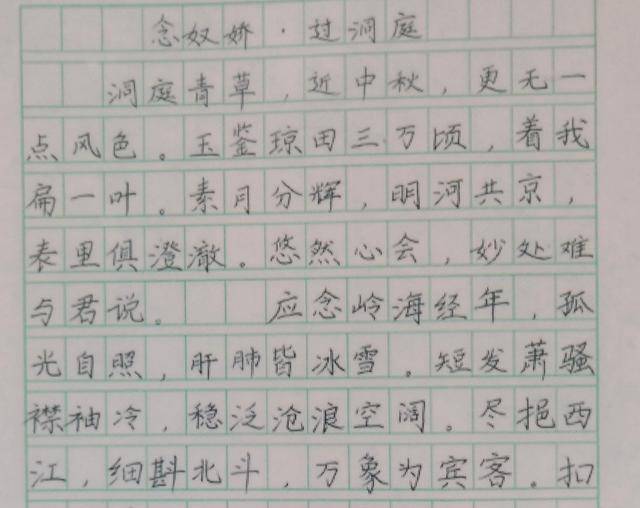 念奴娇·过洞庭
洞庭青草，近中秋，更无一
点风色。玉鉴琼田三万顷，着我
扁一叶。素月分辉，明河共京，
表里俱澄澈。悠然心会，妙处难
与君说。 应念岭海经年，孤
光自照，肝肺皆冰雪。短发萧骚
襟袖冷，稳泛沧浪空阔。尽挹西
江，细斟北斗，万象为宾客。扣